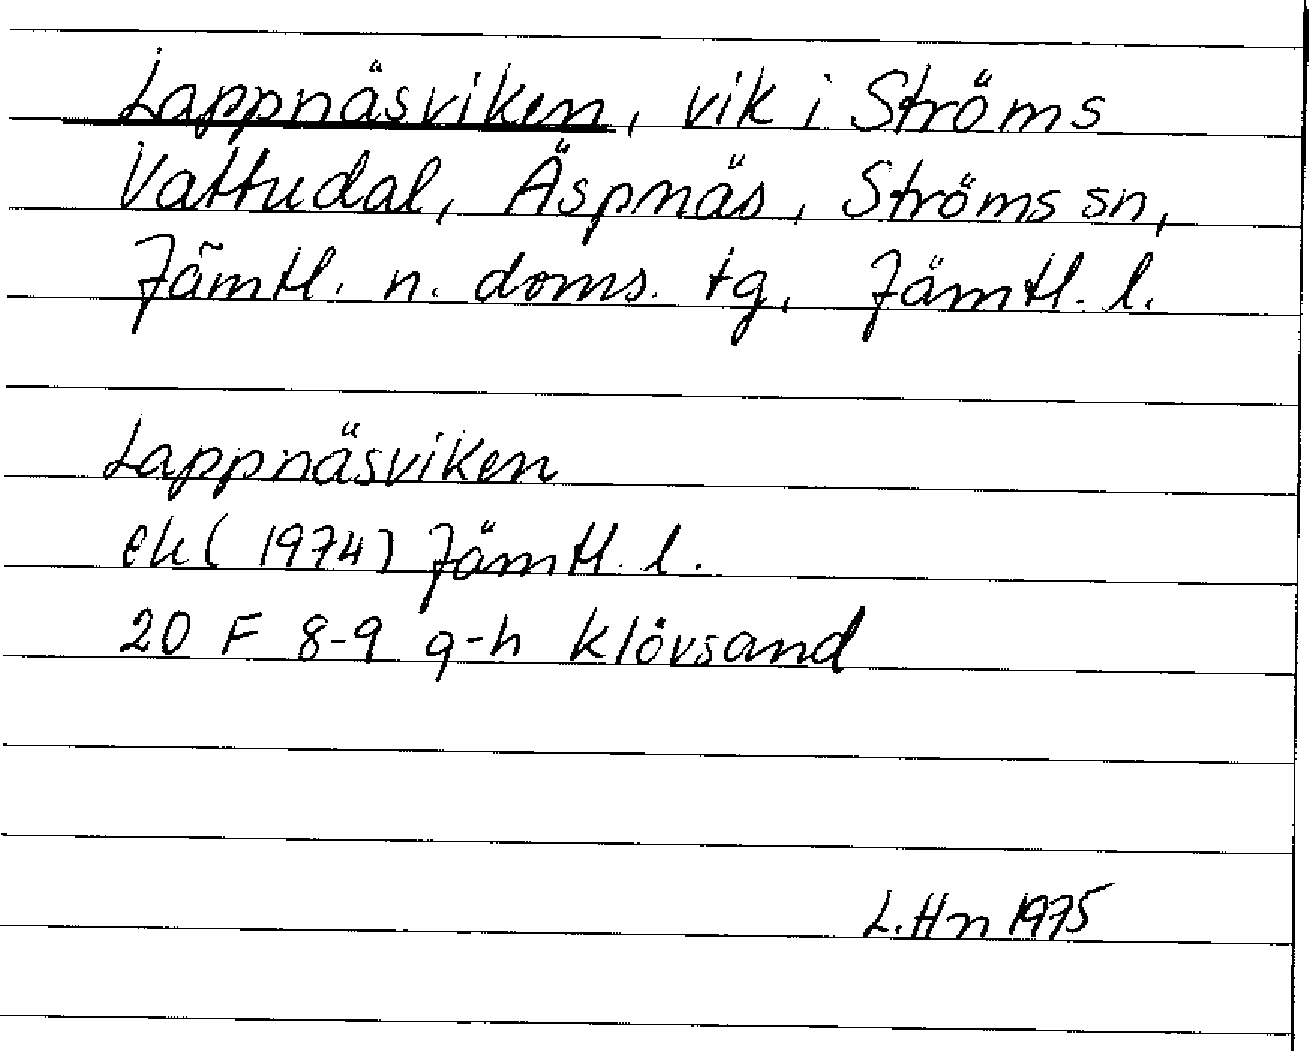 Lappnäsviken, vik i Ströms
Vattudal, Äspnäs, Ströms sn,
Jämtl. n. doms. tg, Jämtl. l.
Lappnäsviken
ek (1974) Jämtl. l.
20 F 8-9 g-h Klövsand
L. Hn 1975